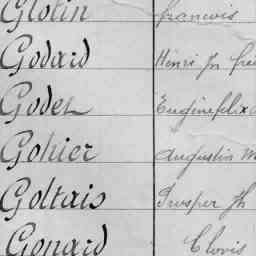 Glotin francois
Godard Henri Jn
Godet Eugène felix
Gohier augustin
Goltais Prosper Jh
Gonard Clovis